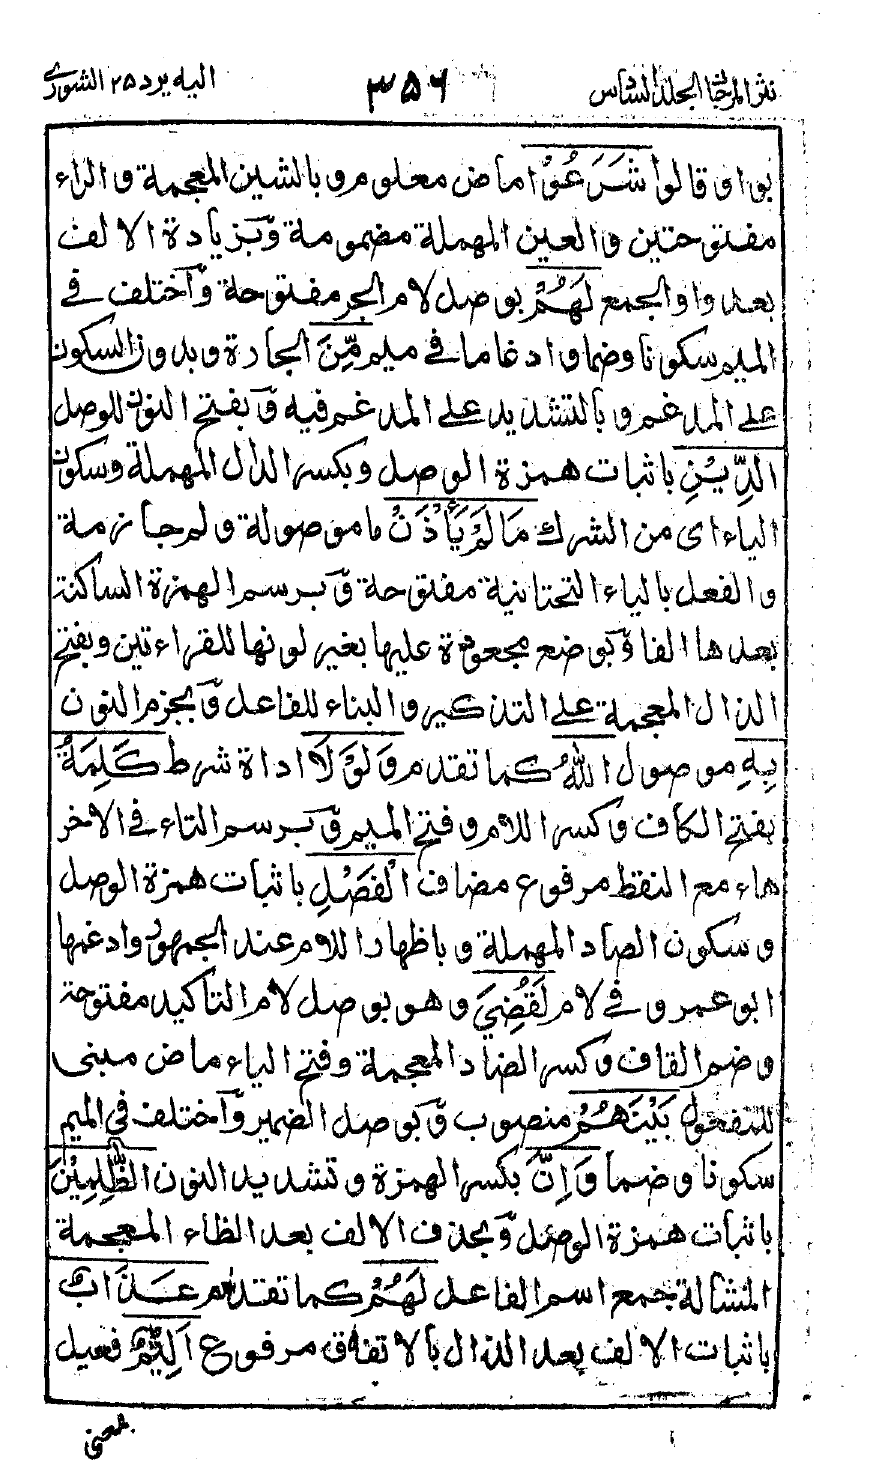 نثر المرجان الجلد السادس ٣٥٦ اليه يرد ٢٥ الشورى
بواو قالوا شَرَعُوْا ماض معلوم وبالشين المعجمة والراء
مفتوحتين والعين المهملة مضمومة وبزيادة الالف
بعد واو الجمع لَهُمْ بوصل لام الجر مفتوحة واختلف في
الميم سكونا وضما وادغاما في ميم مِّنَ الجارة وبدون السكون
على المدغم وبالتشديد على المدغم فيه وبفتح النون للوصل
الدِّيْنِ باثبات همزة الوصل وبكسر الدال المهملة وسكون
الياء اى من الشرك مَا لَمْ يَأْذَنْ ما موصولة ولم جازمة
والفعل بالياء التحتانية مفتوحة وبرسم الهمزة الساكنة
بعدها الفا وبوضع مجعودة عليها بغير لونها للقراءتين وبفتح
الذال المعجمة على التذكير والبناء للفاعل وبجزم النون
بِهِ موصول اللهُ كما تقدم وَلَوْلَا اداة شرط كَلِمَةُ
بفتح الكاف وكسر اللام وفتح الميم وبرسم التاء في الاخر
هاء مع النقط مرفوع مضاف الْفَصْلِ باثبات همزة الوصل
وسكون الصاد المهملة وباظهار اللام عند الجمهور وادغمها
ابو عمرو في لام لَقُضِيَ وهو بوصل لام التاكيد مفتوحة
وضم القاف وكسر الضاد المعجمة وفتح الياء ماض مبنى
للمفعول بَيْنَهُمْ منصوب وبوصل الضمير واختلف في الميم
سكونا وضما وَاِنَّ بكسر الهمزة وتشديد النون الظّٰلِمِيْنَ
باثبات همزة الوصل وبحذف الالف بعد الظاء المعجمة
المشالة جمع اسم الفاعل لَهُمْ كما تقدم عَذَابٌ
باثبات الالف بعد الذال بالاتفاق مرفوع اَلِيْمٌ فعيل
بمعنى